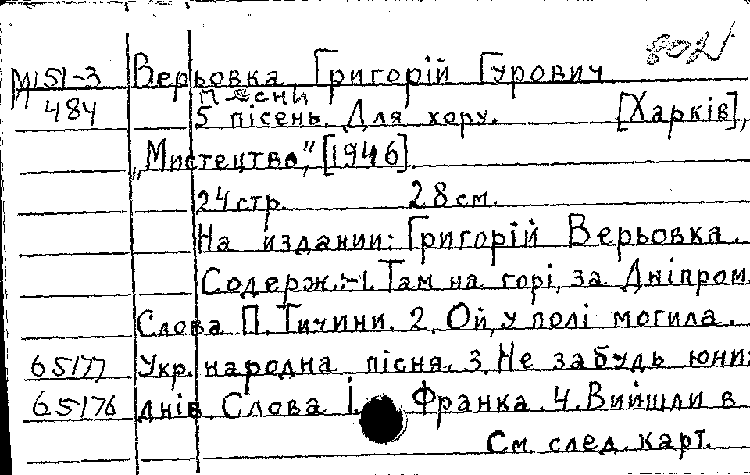 802
М151-3 Верьовка Григорій Гурович
484 Пѣсни
5 пісень. Для хору. [Харків],
„Мистецтво", [1946].
24 стр. 28 см.
На издании: Григорій Верьовка.
Содерж.:-1. Там на горі, за Дніпром.
Слова П. Тичини. 2. Ой, у полі могила.
65177 Укр. народна пісня. 3. Не забудь юних
65176 днів. Слова І. Франка. 4. Вийшли в
См. след. карт.